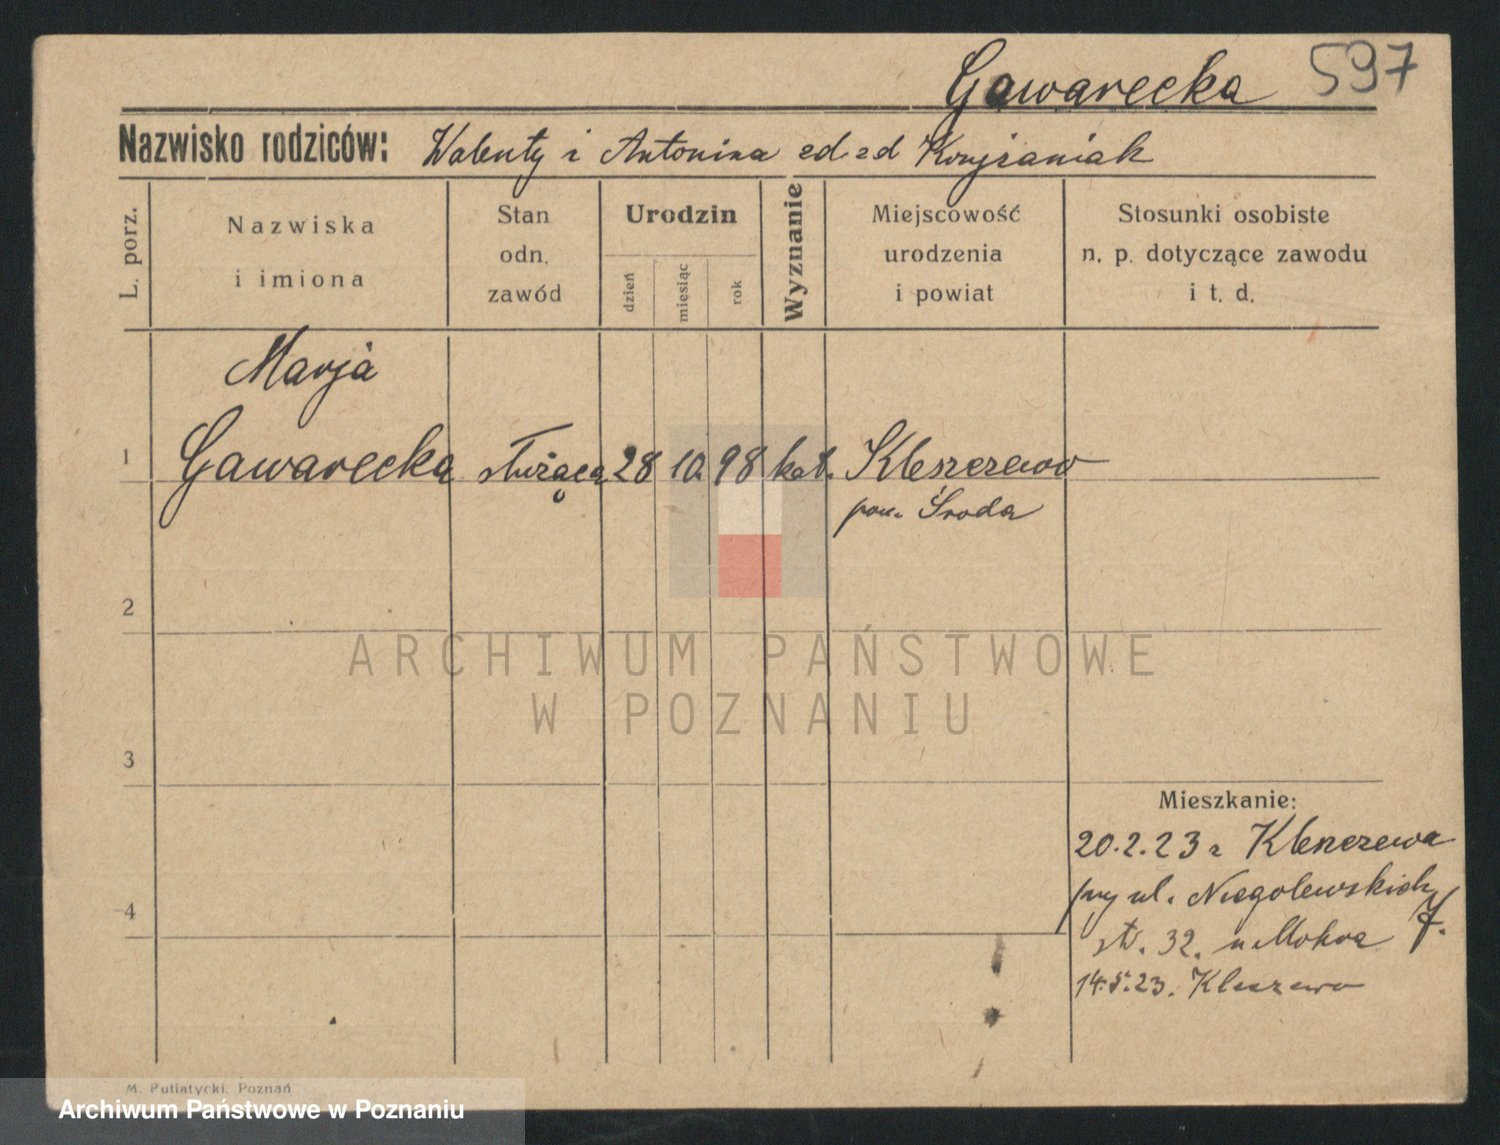 Gawarecka 597
Nazwisko rodziców: Walenty i Antonina Krzyżaniak
L. porz.
Nazwiska
i imiona
Stan
odn.
zawód
Urodzin
dzień
miesiąc
rok
Wyznanie
Miejscowość
urodzenia
i powiat
Stosunki osobiste
n. p. dotyczące zawodu
i t. d.
Marja
1 Gawarecka służąca 28 10 98 kat. Kleszczewo
pow. Środa
2
ARCHIWUM PAŃSTWOWE
W POZNANIU
3
Mieszkanie:
20.2.23 z Kleszczewa
przy ul. Niegolewskich 7.
4
32. u Mokra
14.5.23. Kleszczewo
M. Putiatycki, Poznań
Archiwum Państwowe w Poznaniu